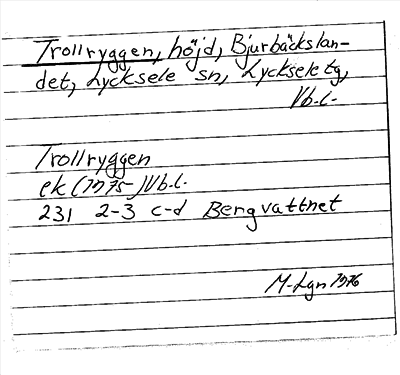 Trollryggen, höjd, Bjurbäckslan-
det, Lycksele sn, Lycksele tg,
Vb.l.
Trollryggen
ek (1975) Vb.l.
231 2-3 c-d Bergvattnet
M-Lgn 1976